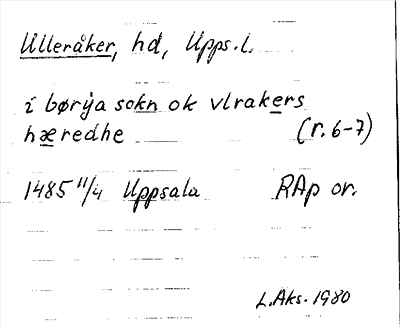 Ulleråker, hd, Upps. l.
i børya sokn ok vlrakers
hæredhe (r. 6-7)
1485 11/4 Uppsala RAp or.
L. Aks. 1980